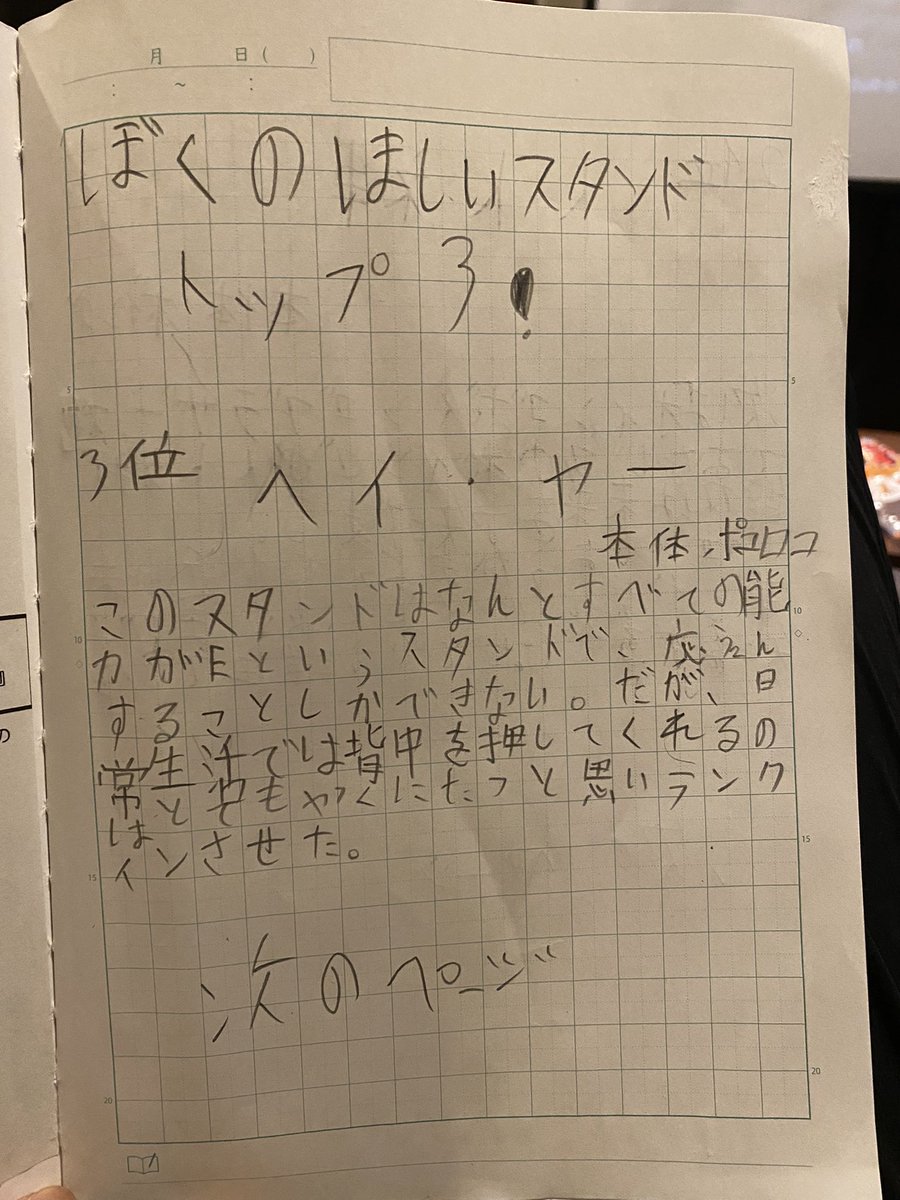 月 日( )
: ~ :
ぼくのほしいスタンド
トップ3!
5
5
3位 ヘイ・ヤー
本体、ポコロコ
このスタンドはなんとすべての能
10
10
力がEというスタンドで、応えん
することしかできない。だが、日
常生活では背中を押してくれるの
はとてもやくにたつと思いランク
15
インさせた。
15
次のページ
20
20